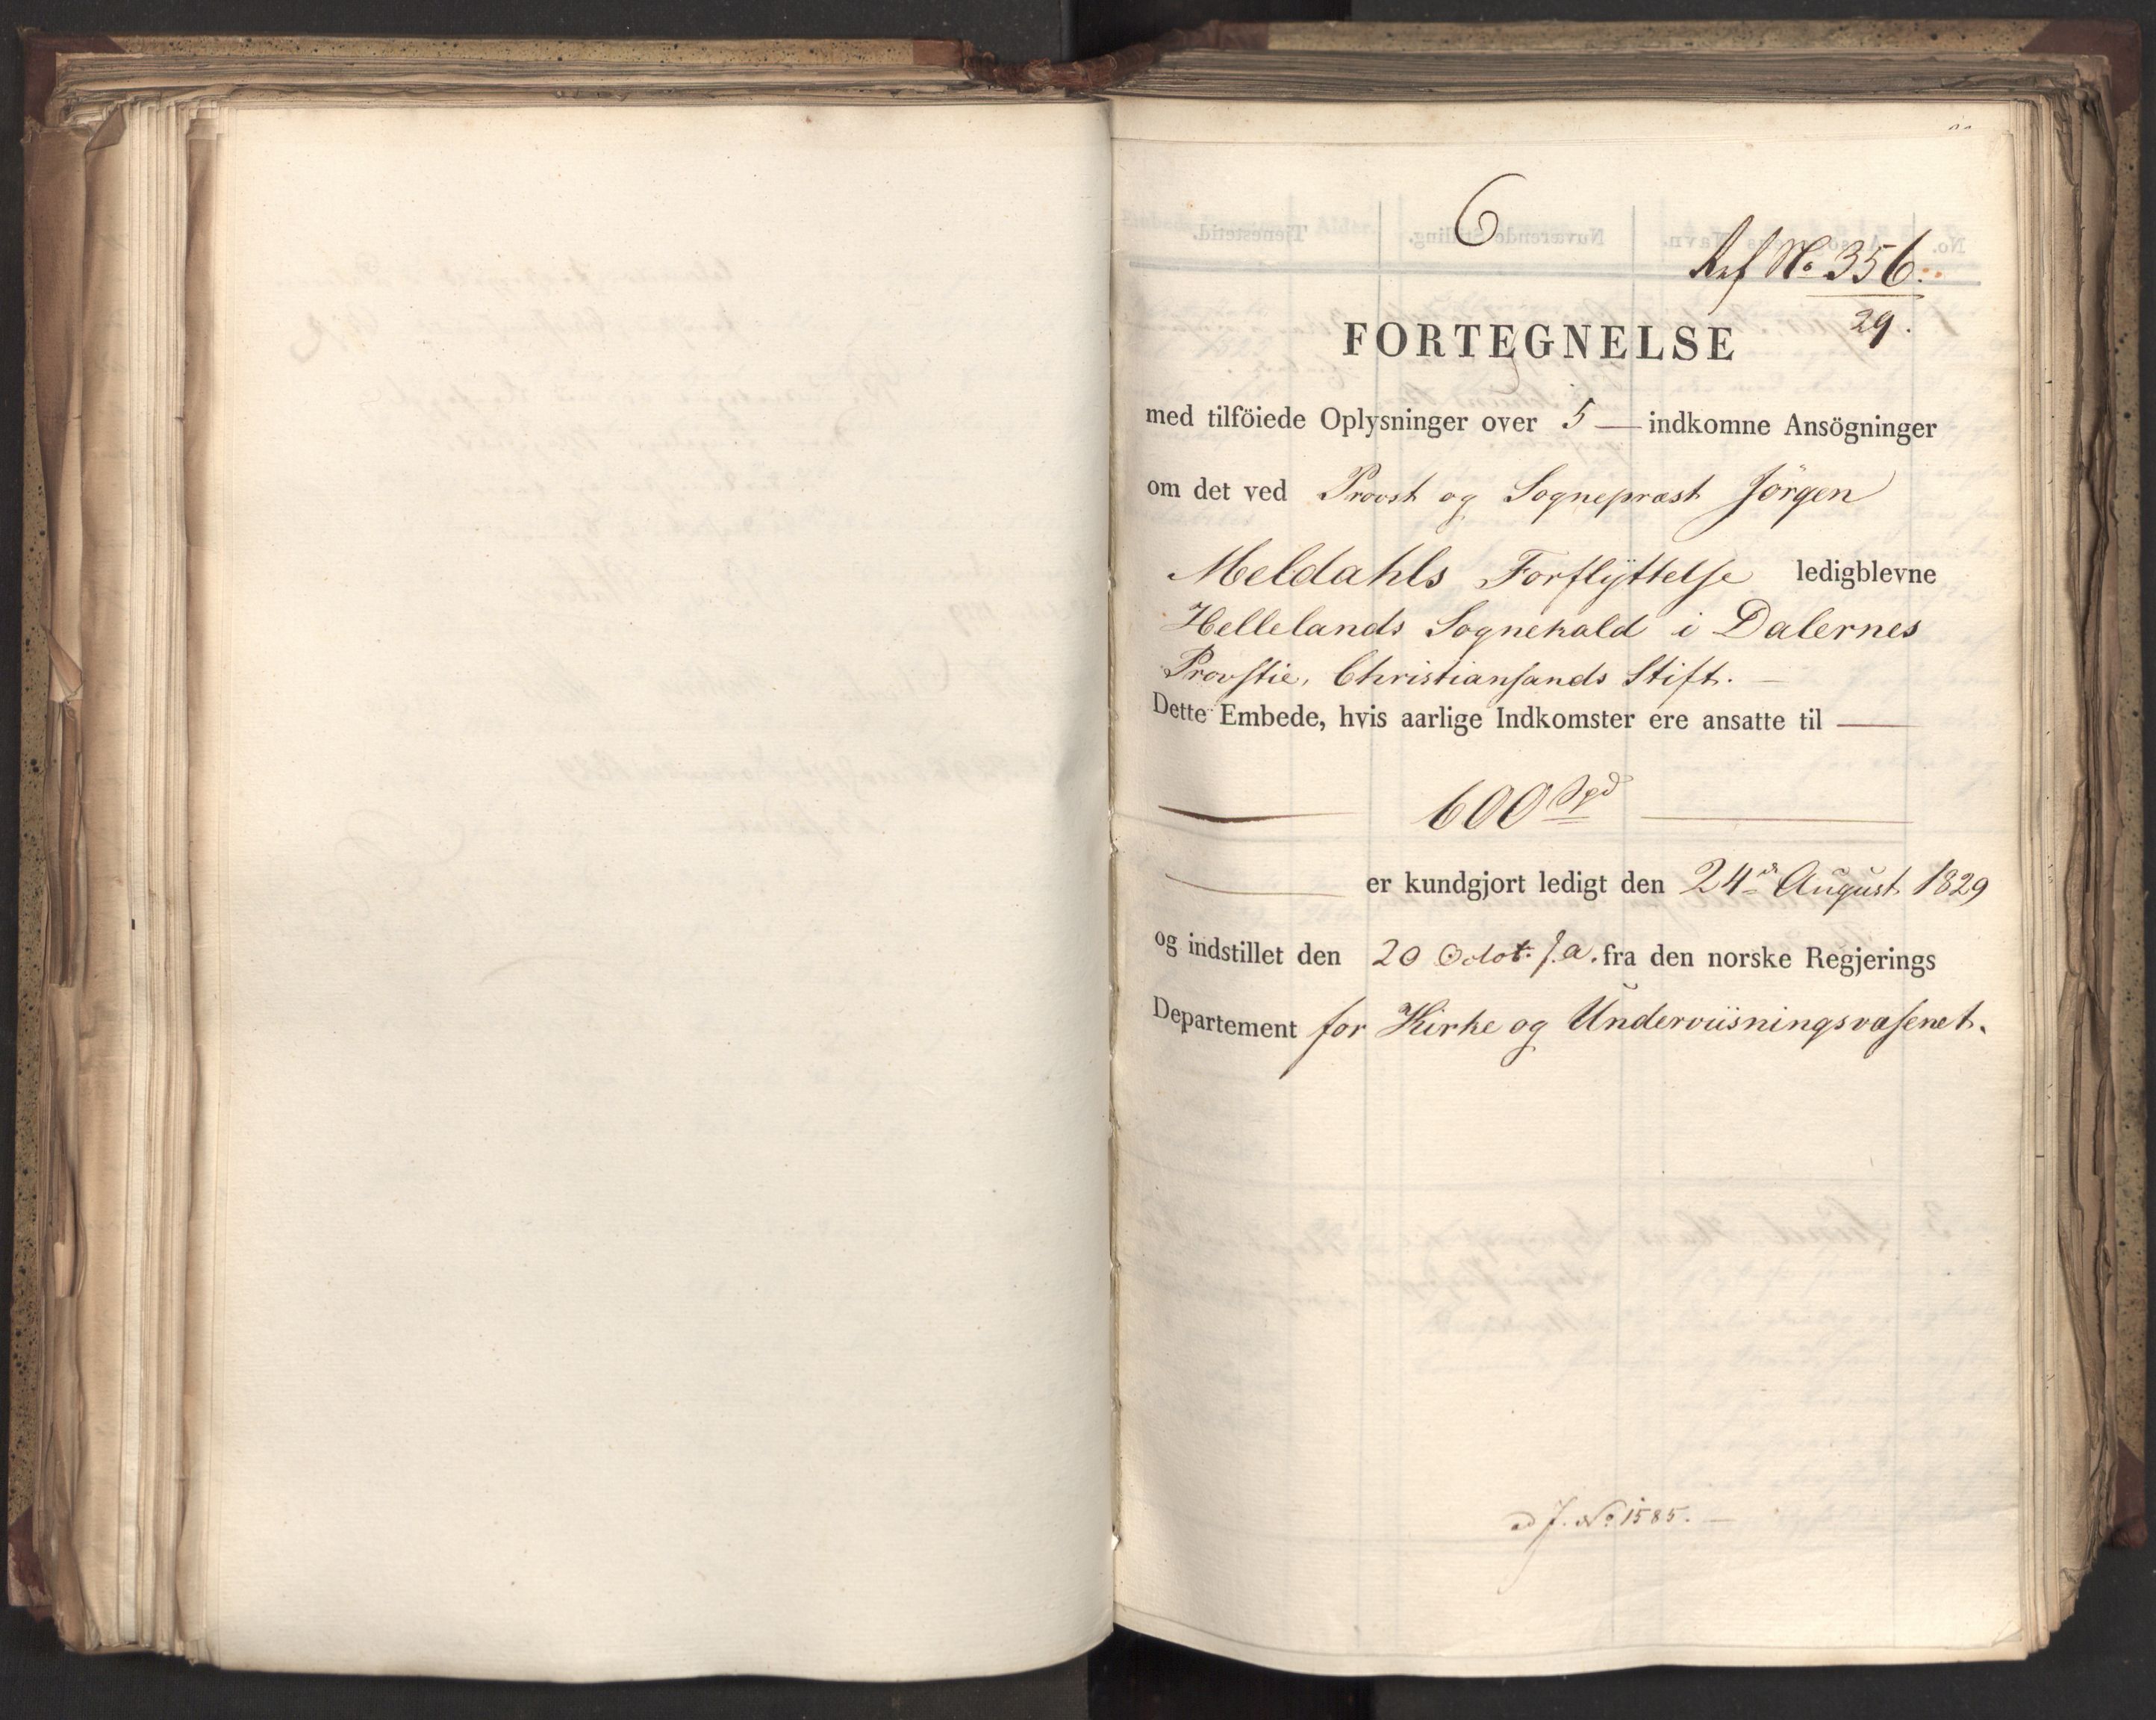 6
Ref No. 356.
29.
FORTEGNELSE
med tilföiede Oplysninger over 5 — indkomne Ansögninger
om det ved Provst og Sognepræst Jörgen
Meldahls Forflÿttelse ledigblevne
Hellelands Sognekald i Dalernes
Provstie, Christiansands Stift. —
Dette Embede, hvis aarlige Indkomster ere ansatte til —
600 Spd
er kundgjort ledigt den 24de August 1829
og indstillet den 20 Octbr. s. a. fra den norske Regjerings
Departement for Kirke og Underviisningsvæsenet.
ad J. No 1585. —